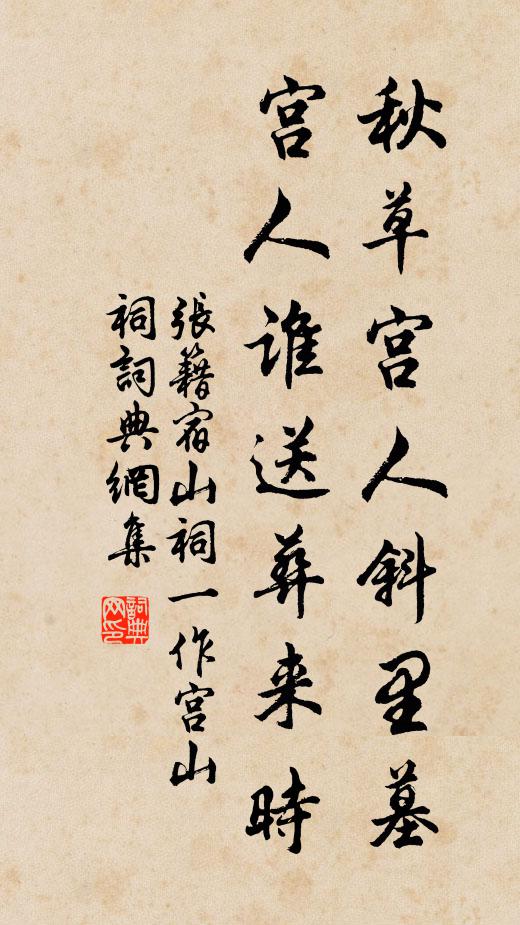 秋草宫人斜里墓
宫人誰送葬来時
張籍宿山祠一作宫山
祠詞典網集
詞典网印